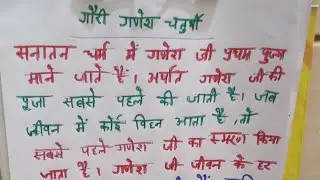 गौरी गणेश चतुर्थी
सनातन धर्म में गणेश जी प्रथम पूज्य
माने जाते है। अर्थात गणेश जी की
पूजा सबसे पहले की जाती है। जब
जीवन में कोई विघ्न आता है, तो
सबसे पहले गणेश जी का स्मरण किया
जाता है। गणेश जी जीवन के हर